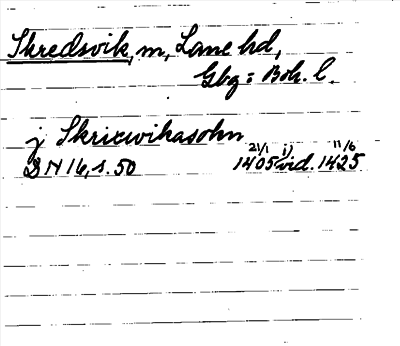 Skredsvik, m, Lane hd,
Gbg: Boh. l.
j Skrixwikasokn
DN 16, s. 50 1405 21/1 1) vid. 1425 11/6